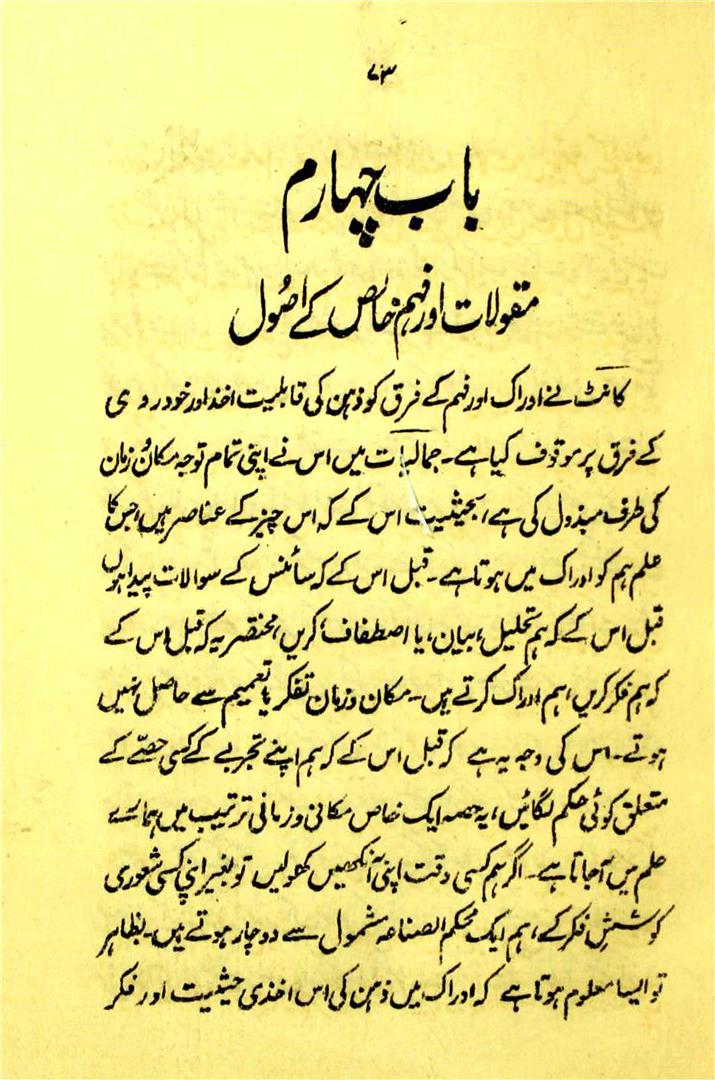 ۷۳
باب چہارم
مقولات اور فہم خالص کے اصُول
کانٹ نے ادراک اور فہم کے فرق کو ذہن کی قابلیت اخذ اور خود روی
کے فرق پر موقوف کیا ہے۔ جمالیات میں اس نے اپنی تمام توجہ مکان و زمان
کی طرف مبذول کی ہے، بحیثیت اس کے کہ اس چیز کے عناصر ہیں، جس کا
علم ہم کو ادراک میں ہوتا ہے۔ قبل اس کے کہ سائنس کے سوالات پیدا ہوں
قبل اس کے کہ ہم تحلیل، بیان، یا اصطفاف کریں، مختصر یہ کہ قبل اس کے
کہ ہم فکر کریں، ہم ادراک کرتے ہیں۔ مکان و زمان تفکر یا تعمیم سے حاصل نہیں
ہوتے۔ اس کی وجہ یہ ہے کہ قبل اس کے کہ ہم اپنے تجربے کے کسی حصّے کے
متعلق کوئی حکم لگائیں، یہ حصہ ایک خاص مکانی و زمانی ترتیب میں ہمارے
علم میں آجاتا ہے۔ اگر ہم کسی وقت اپنی آنکھیں کھولیں تو بغیر اپنی کسی شعوری
کوششِ فکر کے، ہم ایک محکم الصناعہ شمول سے دوچار ہوتے ہیں۔ بظاہر
تو ایسا معلوم ہوتا ہے کہ ادراک میں ذہن کی اس اخذی حیثیت اور فکر